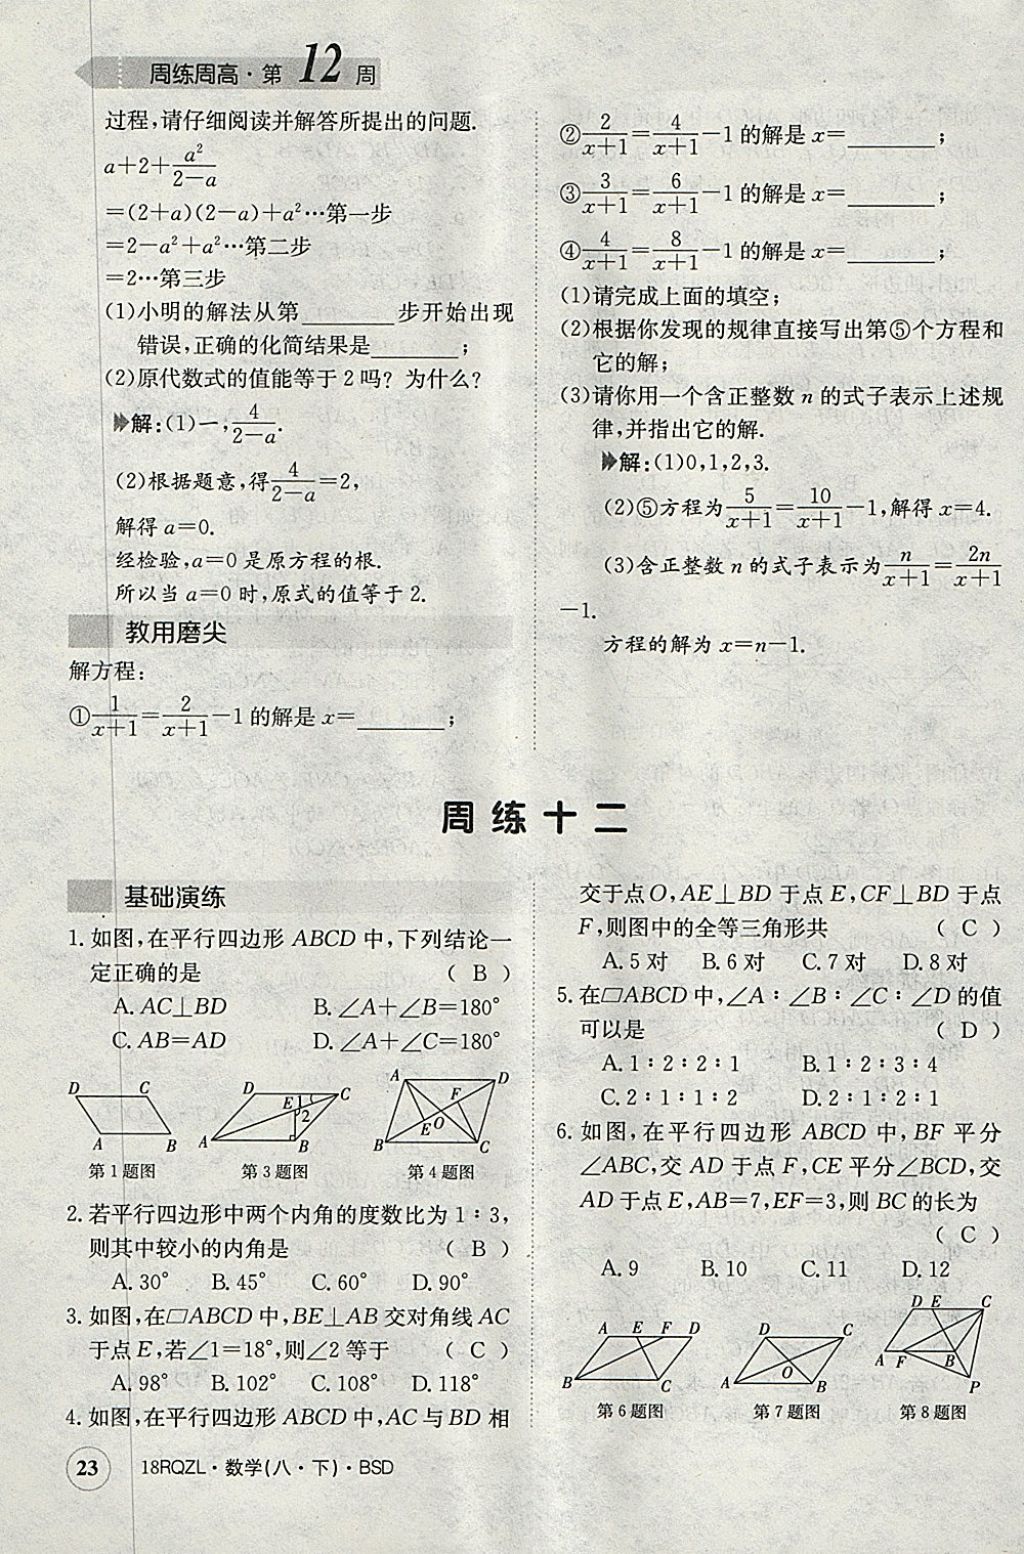 周练周高·第12周
过程,请仔细阅读并解答所提出的问题.
a+2+a²/(2-a)
=(2+a)(2-a)+a²…第一步
=2-a²+a²…第二步
=2…第三步
(1)小明的解法从第______步开始出现
错误,正确的化简结果是______;
(2)原代数式的值能等于2吗? 为什么?
解:(1)一,4/(2-a).
(2)根据题意,得4/(2-a)=2,
解得a=0.
经检验,a=0是原方程的根.
所以当a=0时,原式的值等于2.
教用磨尖
解方程:
①1/(x+1)=2/(x+1)-1的解是x=______;
②2/(x+1)=4/(x+1)-1的解是x=______;
③3/(x+1)=6/(x+1)-1的解是x=______;
④4/(x+1)=8/(x+1)-1的解是x=______;
(1)请完成上面的填空;
(2)根据你发现的规律直接写出第⑤个方程和
它的解;
(3)请你用一个含正整数n的式子表示上述规
律,并指出它的解.
解:(1)0,1,2,3.
(2)⑤方程为5/(x+1)=10/(x+1)-1,解得x=4.
(3)含正整数n的式子表示为n/(x+1)=2n/(x+1)
-1.
方程的解为x=n-1.
周练十二
基础演练
1.如图,在平行四边形ABCD中,下列结论一
定正确的是 ( B )
A.AC⊥BD B.∠A+∠B=180°
C.AB=AD D.∠A+∠C=180°
D C A B
D C E 1 2 A B
A D F E O B C
第1题图 第3题图 第4题图
2.若平行四边形中两个内角的度数比为1∶3,
则其中较小的内角是 ( B )
A.30° B.45° C.60° D.90°
3.如图,在▱ABCD中,BE⊥AB交对角线AC
于点E,若∠1=18°,则∠2等于 ( C )
A.98° B.102° C.108° D.118°
4.如图,在平行四边形ABCD中,AC与BD相
交于点O,AE⊥BD于点E,CF⊥BD于点
F,则图中的全等三角形共 ( C )
A.5对 B.6对 C.7对 D.8对
5.在▱ABCD中,∠A∶∠B∶∠C∶∠D的值
可以是 ( D )
A.1∶2∶2∶1 B.1∶2∶3∶4
C.2∶1∶1∶2 D.2∶1∶2∶1
6.如图,在平行四边形ABCD中,BF平分
∠ABC,交AD于点F,CE平分∠BCD,交
AD于点E,AB=7,EF=3,则BC的长为
( C )
A.9 B.10 C.11 D.12
A E F D B C
D C O A B
D E C A F B P
第6题图 第7题图 第8题图
23 18RQZL·数学(八·下)·BSD